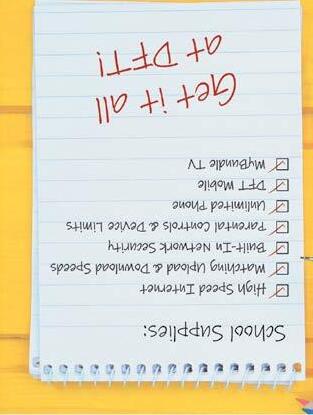 School Supplies:
High Speed Internet
Matching Upload & Download Speeds
Built-In Network Security
Parental Controls & Device Limits
Unlimited Phone
DFT Mobile
MyBundle TV
Get it all
at DFT!